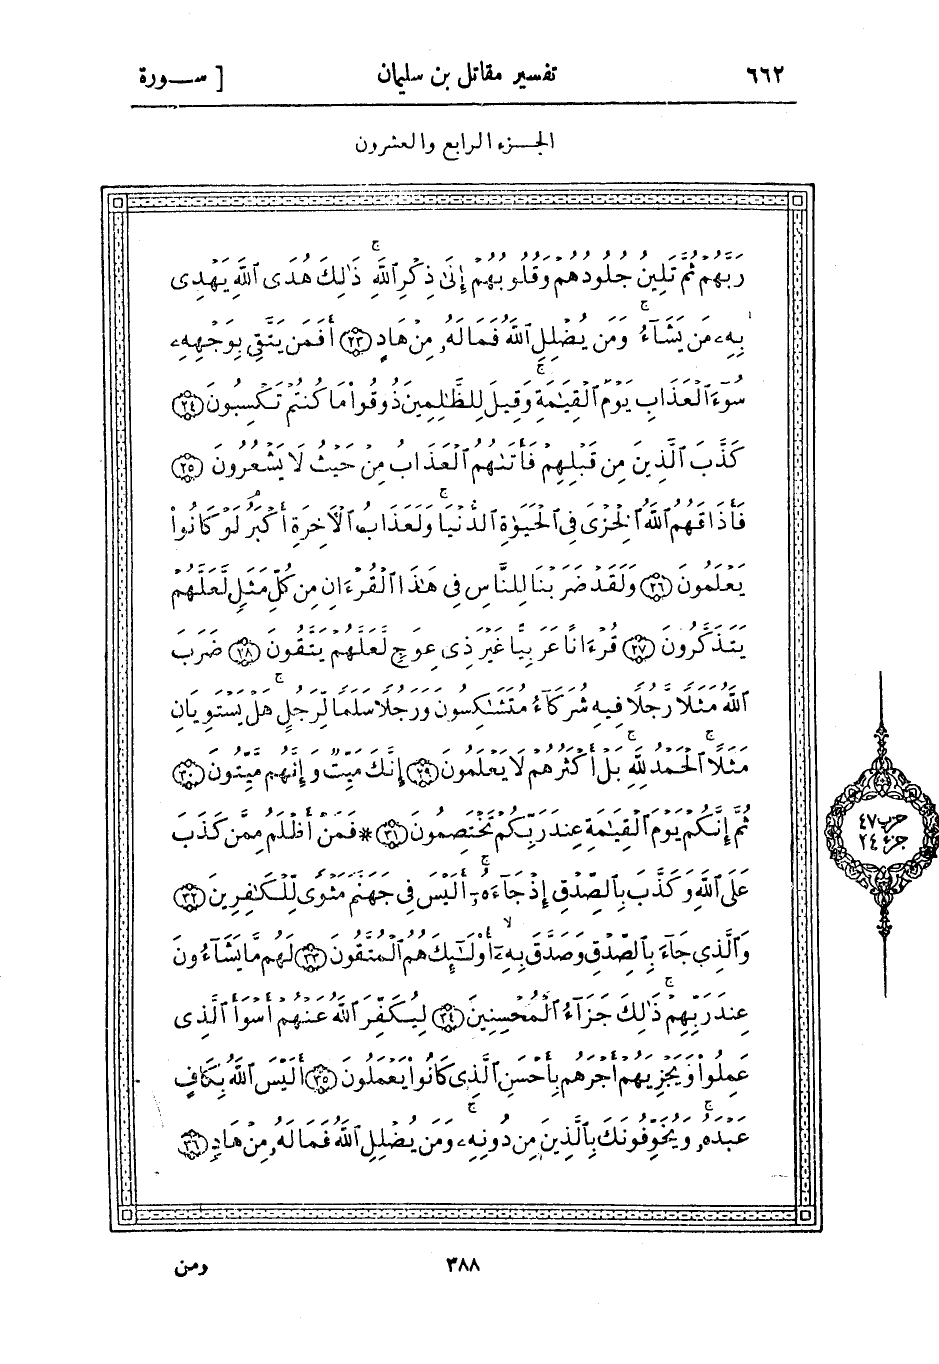 ٦٦٢ تفسير مقاتل بن سليمان [ ســورة
الجــزء الرابع والعشرون
رَبَّهُمْ ثُمَّ تَلِينُ جُلُودُهُمْ وَقُلُوبُهُمْ إِلَىٰ ذِكْرِ ٱللَّهِ ۚ ذَٰلِكَ هُدَى ٱللَّهِ يَهْدِى
بِهِۦ مَن يَشَآءُ ۚ وَمَن يُضْلِلِ ٱللَّهُ فَمَا لَهُۥ مِنْ هَادٍ ﴿٢٣﴾ أَفَمَن يَتَّقِى بِوَجْهِهِۦ
سُوٓءَ ٱلْعَذَابِ يَوْمَ ٱلْقِيَٰمَةِ ۚ وَقِيلَ لِلظَّٰلِمِينَ ذُوقُوا۟ مَا كُنتُمْ تَكْسِبُونَ ﴿٢٤﴾
كَذَّبَ ٱلَّذِينَ مِن قَبْلِهِمْ فَأَتَىٰهُمُ ٱلْعَذَابُ مِنْ حَيْثُ لَا يَشْعُرُونَ ﴿٢٥﴾
فَأَذَاقَهُمُ ٱللَّهُ ٱلْخِزْىَ فِى ٱلْحَيَوٰةِ ٱلدُّنْيَا ۚ وَلَعَذَابُ ٱلْءَاخِرَةِ أَكْبَرُ لَوْ كَانُوا۟
يَعْلَمُونَ ﴿٢٦﴾ وَلَقَدْ ضَرَبْنَا لِلنَّاسِ فِى هَٰذَا ٱلْقُرْءَانِ مِن كُلِّ مَثَلٍ لَّعَلَّهُمْ
يَتَذَكَّرُونَ ﴿٢٧﴾ قُرْءَانًا عَرَبِيًّا غَيْرَ ذِى عِوَجٍ لَّعَلَّهُمْ يَتَّقُونَ ﴿٢٨﴾ ضَرَبَ
ٱللَّهُ مَثَلًا رَّجُلًا فِيهِ شُرَكَآءُ مُتَشَٰكِسُونَ وَرَجُلًا سَلَمًا لِّرَجُلٍ هَلْ يَسْتَوِيَانِ
مَثَلًا ۚ ٱلْحَمْدُ لِلَّهِ ۚ بَلْ أَكْثَرُهُمْ لَا يَعْلَمُونَ ﴿٢٩﴾ إِنَّكَ مَيِّتٌ وَإِنَّهُم مَّيِّتُونَ ﴿٣٠﴾
ثُمَّ إِنَّكُمْ يَوْمَ ٱلْقِيَٰمَةِ عِندَ رَبِّكُمْ تَخْتَصِمُونَ ﴿٣١﴾ * فَمَنْ أَظْلَمُ مِمَّن كَذَبَ
عَلَى ٱللَّهِ وَكَذَّبَ بِٱلصِّدْقِ إِذْ جَآءَهُۥٓ ۚ أَلَيْسَ فِى جَهَنَّمَ مَثْوًى لِّلْكَٰفِرِينَ ﴿٣٢﴾
وَٱلَّذِى جَآءَ بِٱلصِّدْقِ وَصَدَّقَ بِهِۦٓ ۙ أُو۟لَٰٓئِكَ هُمُ ٱلْمُتَّقُونَ ﴿٣٣﴾ لَهُم مَّا يَشَآءُونَ
عِندَ رَبِّهِمْ ۚ ذَٰلِكَ جَزَآءُ ٱلْمُحْسِنِينَ ﴿٣٤﴾ لِيُكَفِّرَ ٱللَّهُ عَنْهُمْ أَسْوَأَ ٱلَّذِى
عَمِلُوا۟ وَيَجْزِيَهُمْ أَجْرَهُم بِأَحْسَنِ ٱلَّذِى كَانُوا۟ يَعْمَلُونَ ﴿٣٥﴾ أَلَيْسَ ٱللَّهُ بِكَافٍ
عَبْدَهُۥ ۚ وَيُخَوِّفُونَكَ بِٱلَّذِينَ مِن دُونِهِۦ ۚ وَمَن يُضْلِلِ ٱللَّهُ فَمَا لَهُۥ مِنْ هَادٍ ﴿٣٦﴾
حزب ٤٧
جزء ٢٤
٣٨٨ ومن